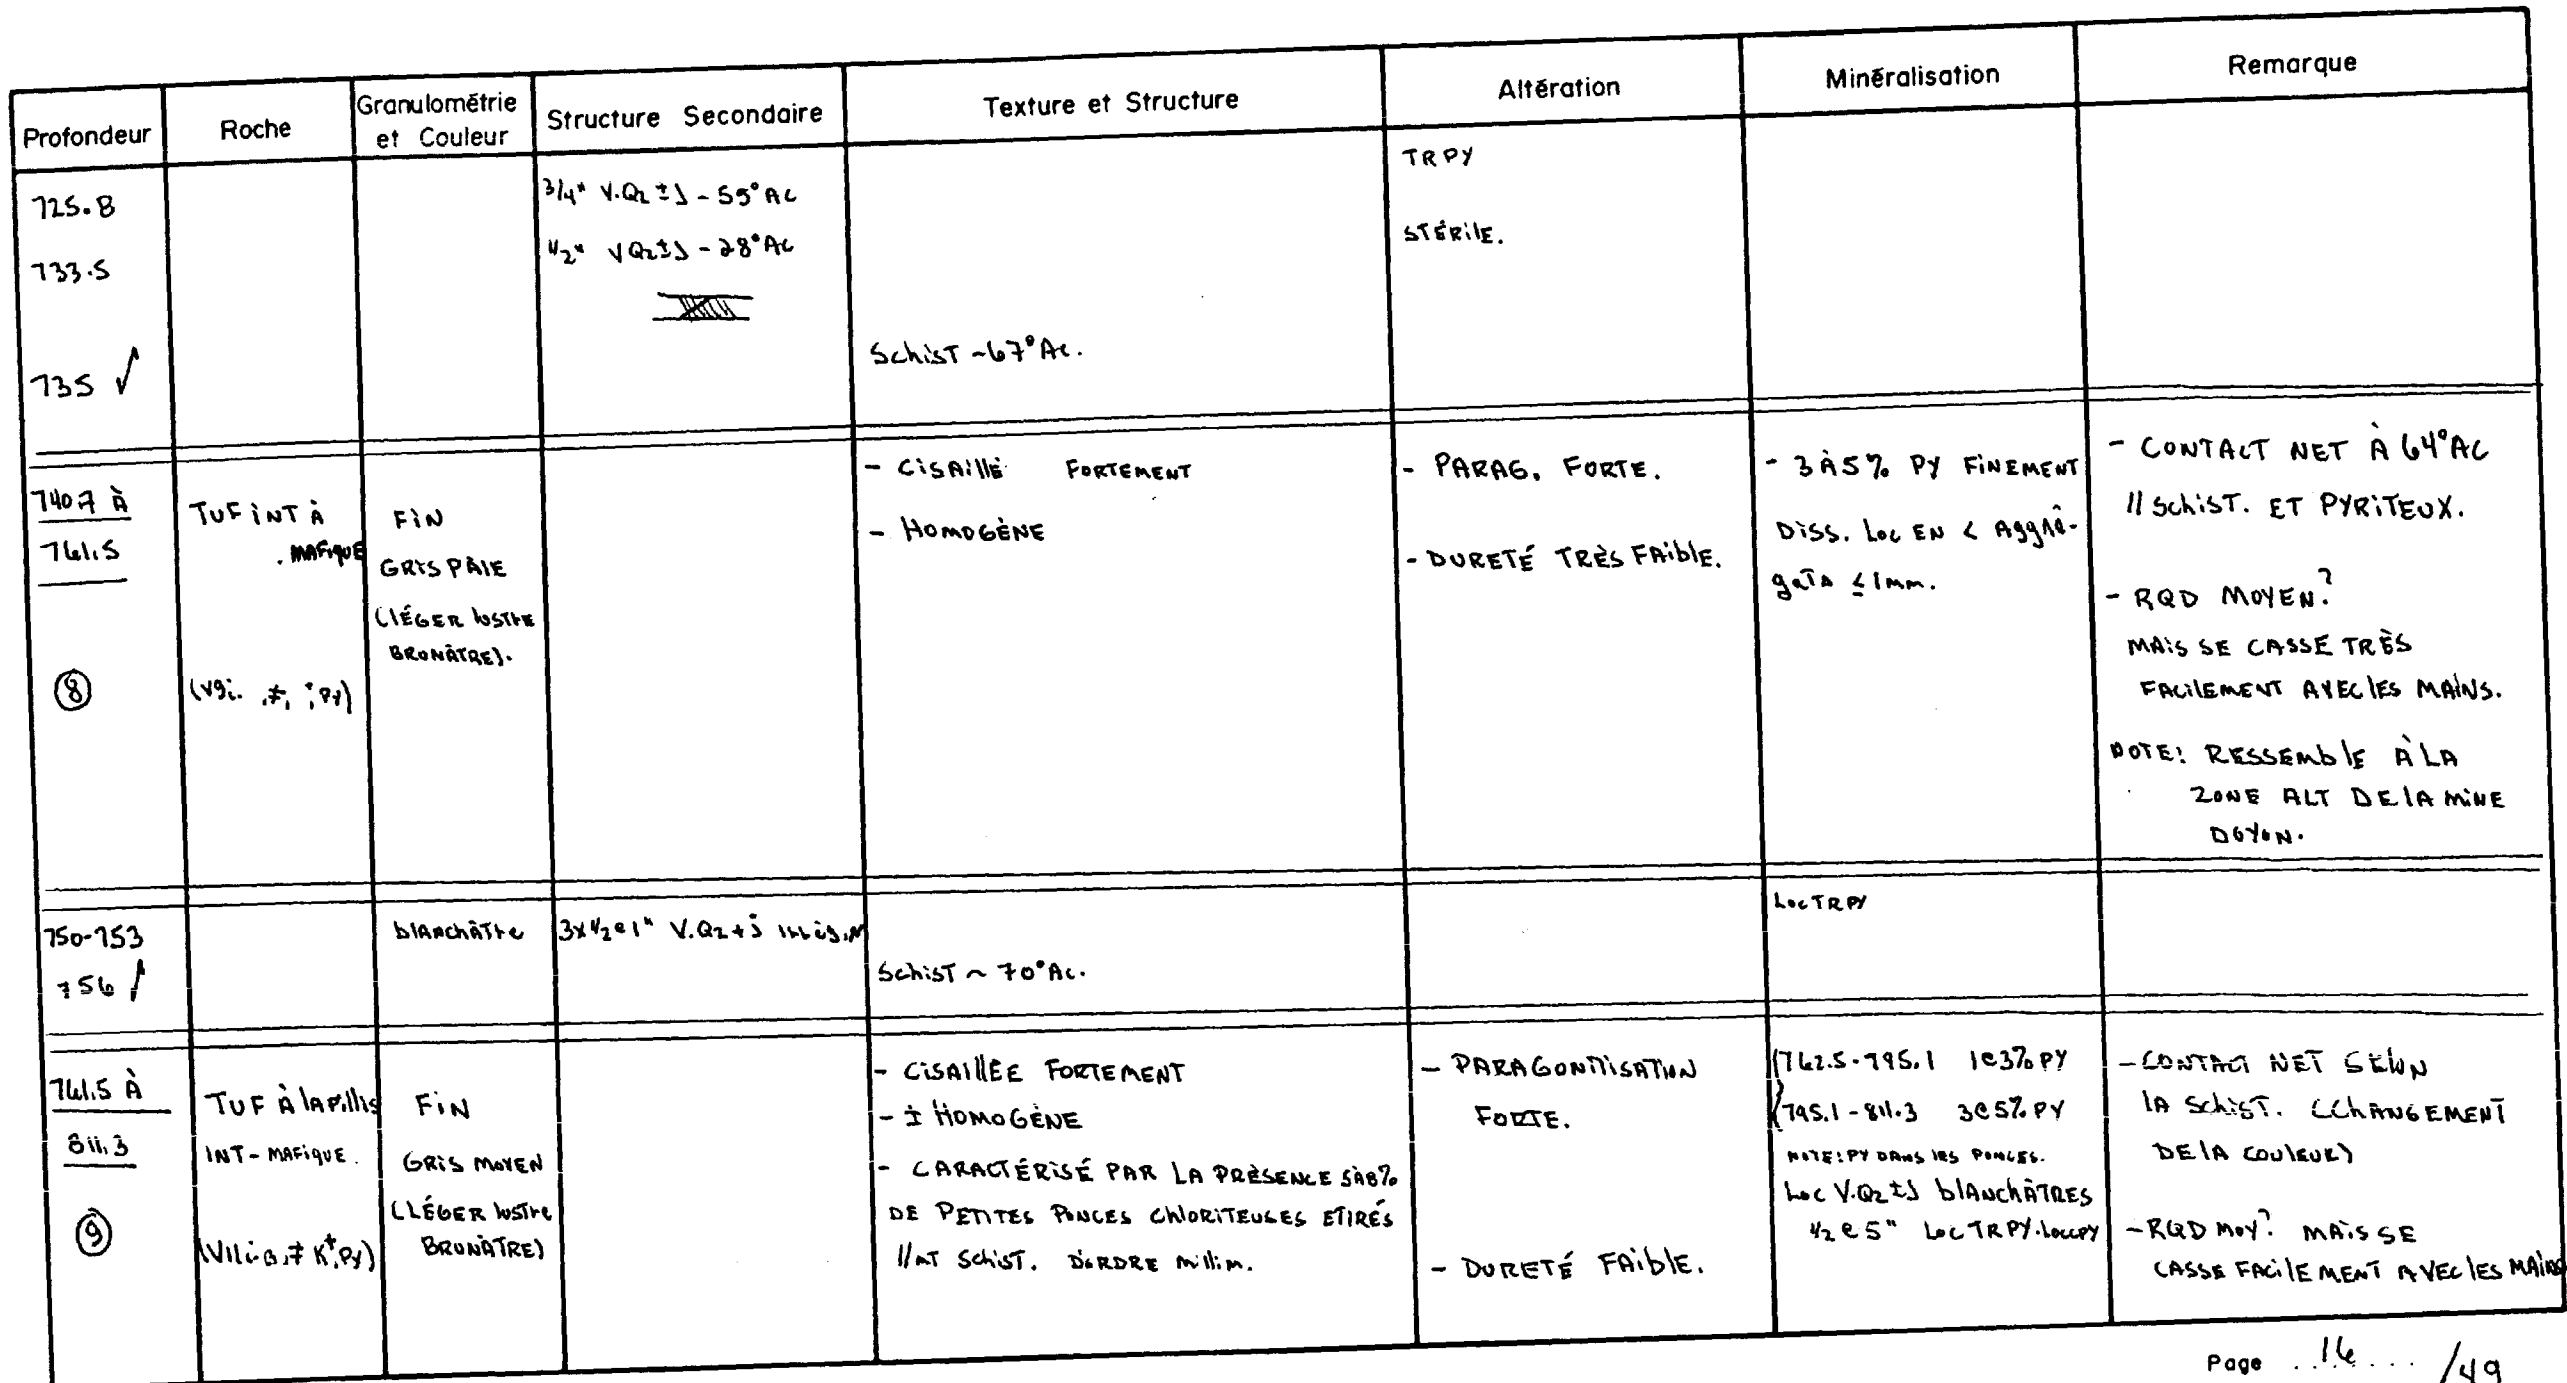 Profondeur
Roche
Granulométrie
et Couleur
Structure Secondaire
Texture et Structure
Altération
Minéralisation
Remarque
725.8
3/4" V.Qz ± J - 55° AC
TR PY
733.5
1/2" VQz ± J - 28° AC
STÉRILE.
735 ✓
SCHIST ~67° AC.
740.7 À
761.5
⑧
TUF INT À
MAFIQUE
FIN
GRIS PÂLE
(LÉGER LUSTRE
BRUNÂTRE).
- CISAILLÉ FORTEMENT
- HOMOGÈNE
- PARAG. FORTE.
- DURETÉ TRÈS FAIBLE.
- 3 À 5% PY FINEMENT
DISS. LOC EN < AGGRÉ-
GATS ≤ 1mm.
- CONTACT NET À 64° AC
// SCHIST. ET PYRITEUX.
- RQD MOYEN?
MAIS SE CASSE TRÈS
FACILEMENT AVEC LES MAINS.
NOTE: RESSEMBLE À LA
ZONE ALT DE LA MINE
DOYON.
750-753
blanchâtre
3x 1/2 @ 1" V.Qz + J
LOC TR PY
756 ✓
SCHIST ~ 70° AC.
761.5 À
811.3
⑨
TUF À LAPILLIS
INT - MAFIQUE.
FIN
GRIS MOYEN
(LÉGER LUSTRE
BRUNÂTRE)
- CISAILLÉE FORTEMENT
- ± HOMOGÈNE
- CARACTÉRISÉ PAR LA PRÈSENCE 5À8%
DE PETITES PONCES CHLORITEUSES ETIRÉS
//MT SCHIST. D'ORDRE MILLIM.
- PARAGONITISATION
FORTE.
- DURETÉ FAIBLE.
762.5-795.1 1@3% PY
795.1-811.3 3@5% PY
NOTE: PY DANS LES PONCES.
LOC V.Qz ± J BLANCHÂTRES
1/2 @ 5" LOC TR PY. LOC CPY
- CONTACT NET SELON
LA SCHIST. (CHANGEMENT
DE LA COULEUR)
- RQD MOY? MAIS SE
CASSE FACILEMENT AVEC LES MAINS
Page 16 /49